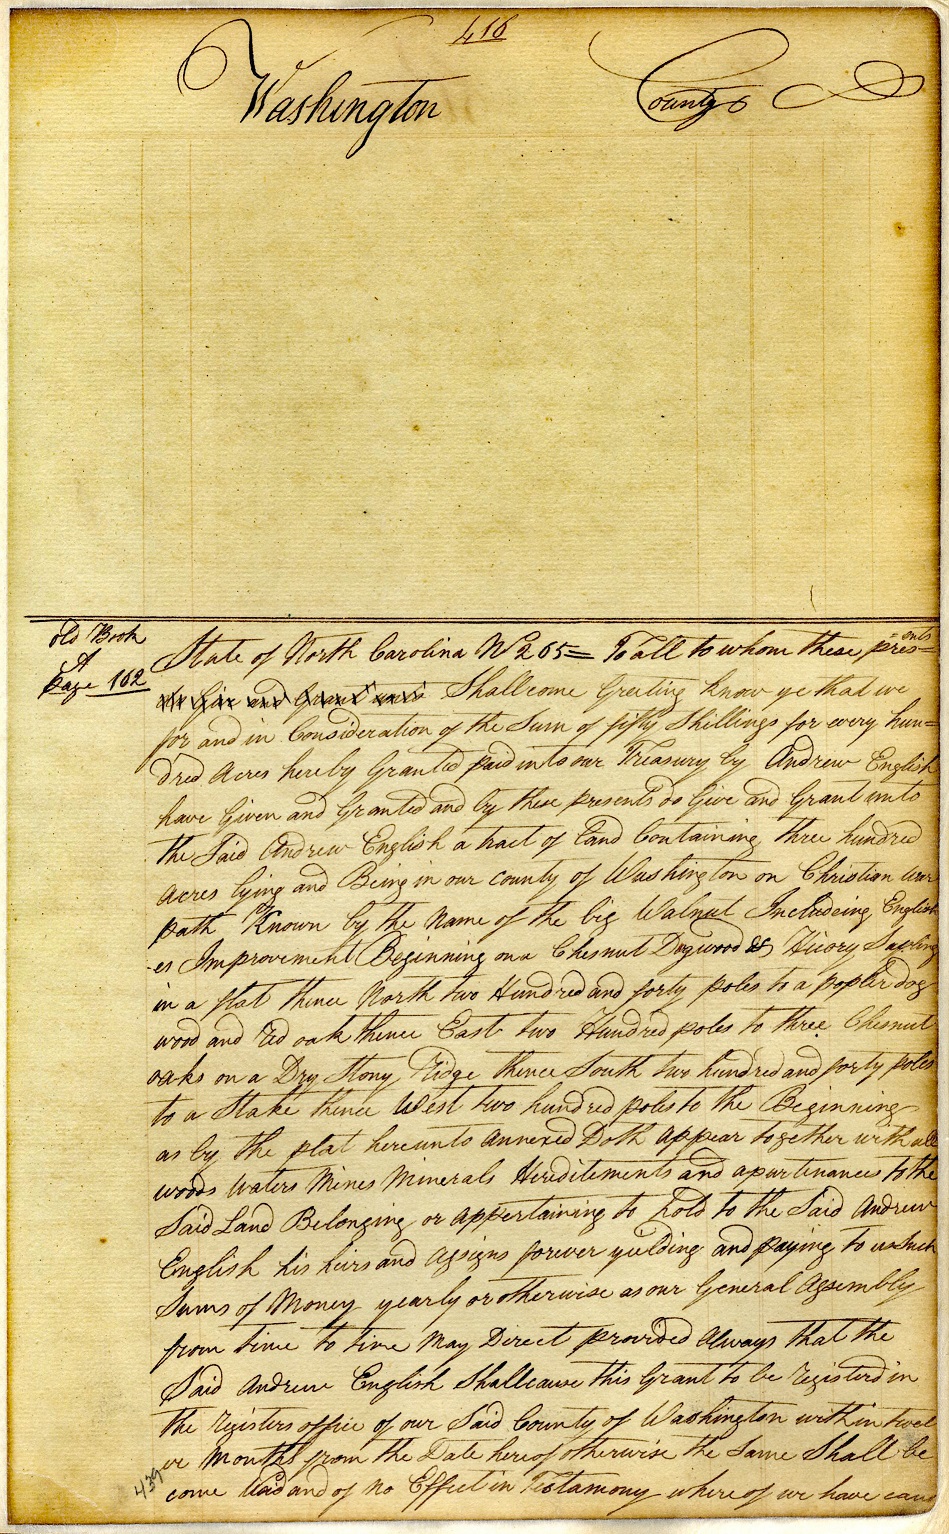 416
Washington County
old Book
A
page 102
State of North Carolina No 265= To all to whom these pres=
=ents
Shall come Greeting know ye that we
for and in Consideration of the Sum of fifty Shillings for every hun=
dred Acres hereby Granted paid into our Treasury by Andrew English
have Given and Granted and by these presents do Give and Grant unto
the Said Andrew English a tract of Land Containing three hundred
Acres lying and Being in our county of Washington on Christian war
path Known by the Name of the big Walnut Includeing English
es Improvement Beginning on a Chesnut Dogwood & Hicory Sapling
in a flat thence North two Hundred and forty poles to a popler dog
wood and red oak thence East two Hundred poles to three Chesnut
oaks on a Dry Stony Ridge thence South two hundred and forty poles
to a Stake thence West two hundred poles to the Beginning
as by the plat hereunto Annexed Doth Appear together with all
woods Waters Mines Minerals Hereditements and apurtinances to the
Said Land Belonging or Appertaining to hold to the Said Andrew
English his heirs and Assigns forever yielding and paying to us Such
Sums of Money yearly or otherwise as our General Assembly
from time to time May Direct provided Always that the
Said Andrew English Shall cause this Grant to be registerd in
the registers office of our Said County of Washington within twel
ve Months from the Date hereof otherwise the Same Shall be
come Void and of No Effect in Testamony where of we have caus
439